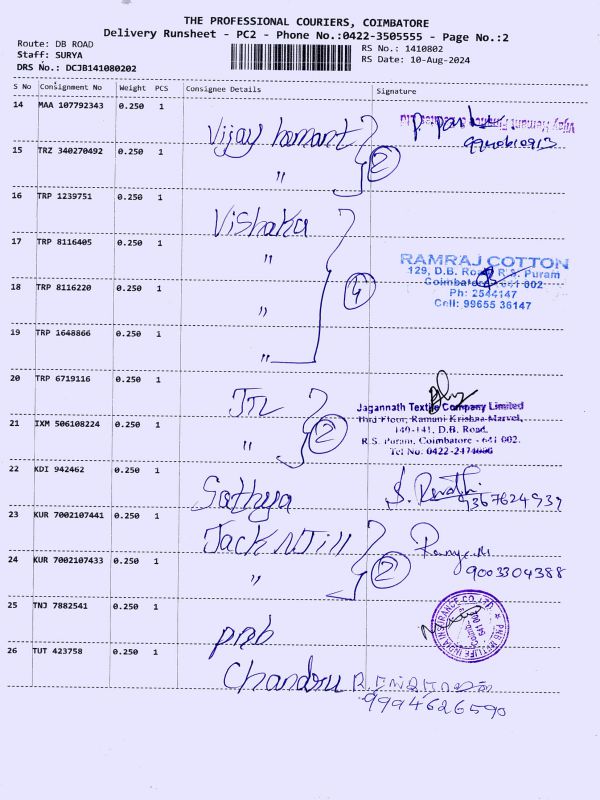 THE PROFESSIONAL COURIERS, COIMBATORE
Delivery Runsheet - PC2 - Phone No.:0422-3505555 - Page No.:2
Route: DB ROAD
RS No.: 1410802
Staff: SURYA
RS Date: 10-Aug-2024
DRS No.: DCJB141080202
S No Consignment No Weight PCS Consignee Details Signature
14 MAA 107792343 0.250 1
Vijay hemant
Vijay Hemant
15 TRZ 340270492 0.250 1
" 2
16 TRP 1239751 0.250 1
Vishaka
17 TRP 8116405 0.250 1
"
RAMRAJ COTTON
129, D.B. Road, R.S. Puram
18 TRP 8116220 0.250 1
Coimbatore - 641 002
" 4
Ph: 2544147
Cell: 99655 36147
19 TRP 1648866 0.250 1
"
20 TRP 6719116 0.250 1
Jagannath Textile Company Limited
Third Floor, Ramani Krishna Marvel,
21 IXM 506108224 0.250 1
140-141, D.B. Road,
2
R.S. Puram, Coimbatore - 641 002.
Tel No. 0422-2474086
22 KDI 942462 0.250 1
Sathya
9367624939
23 KUR 7002107441 0.250 1
Jack N Jill
24 KUR 7002107433 0.250 1
" 2
9003304388
25 TNJ 7882541 0.250 1
pnb
PNB METLIFE INDIA INSURANCE CO. LTD.
26 TUT 423758 0.250 1
Chandru
9994626590